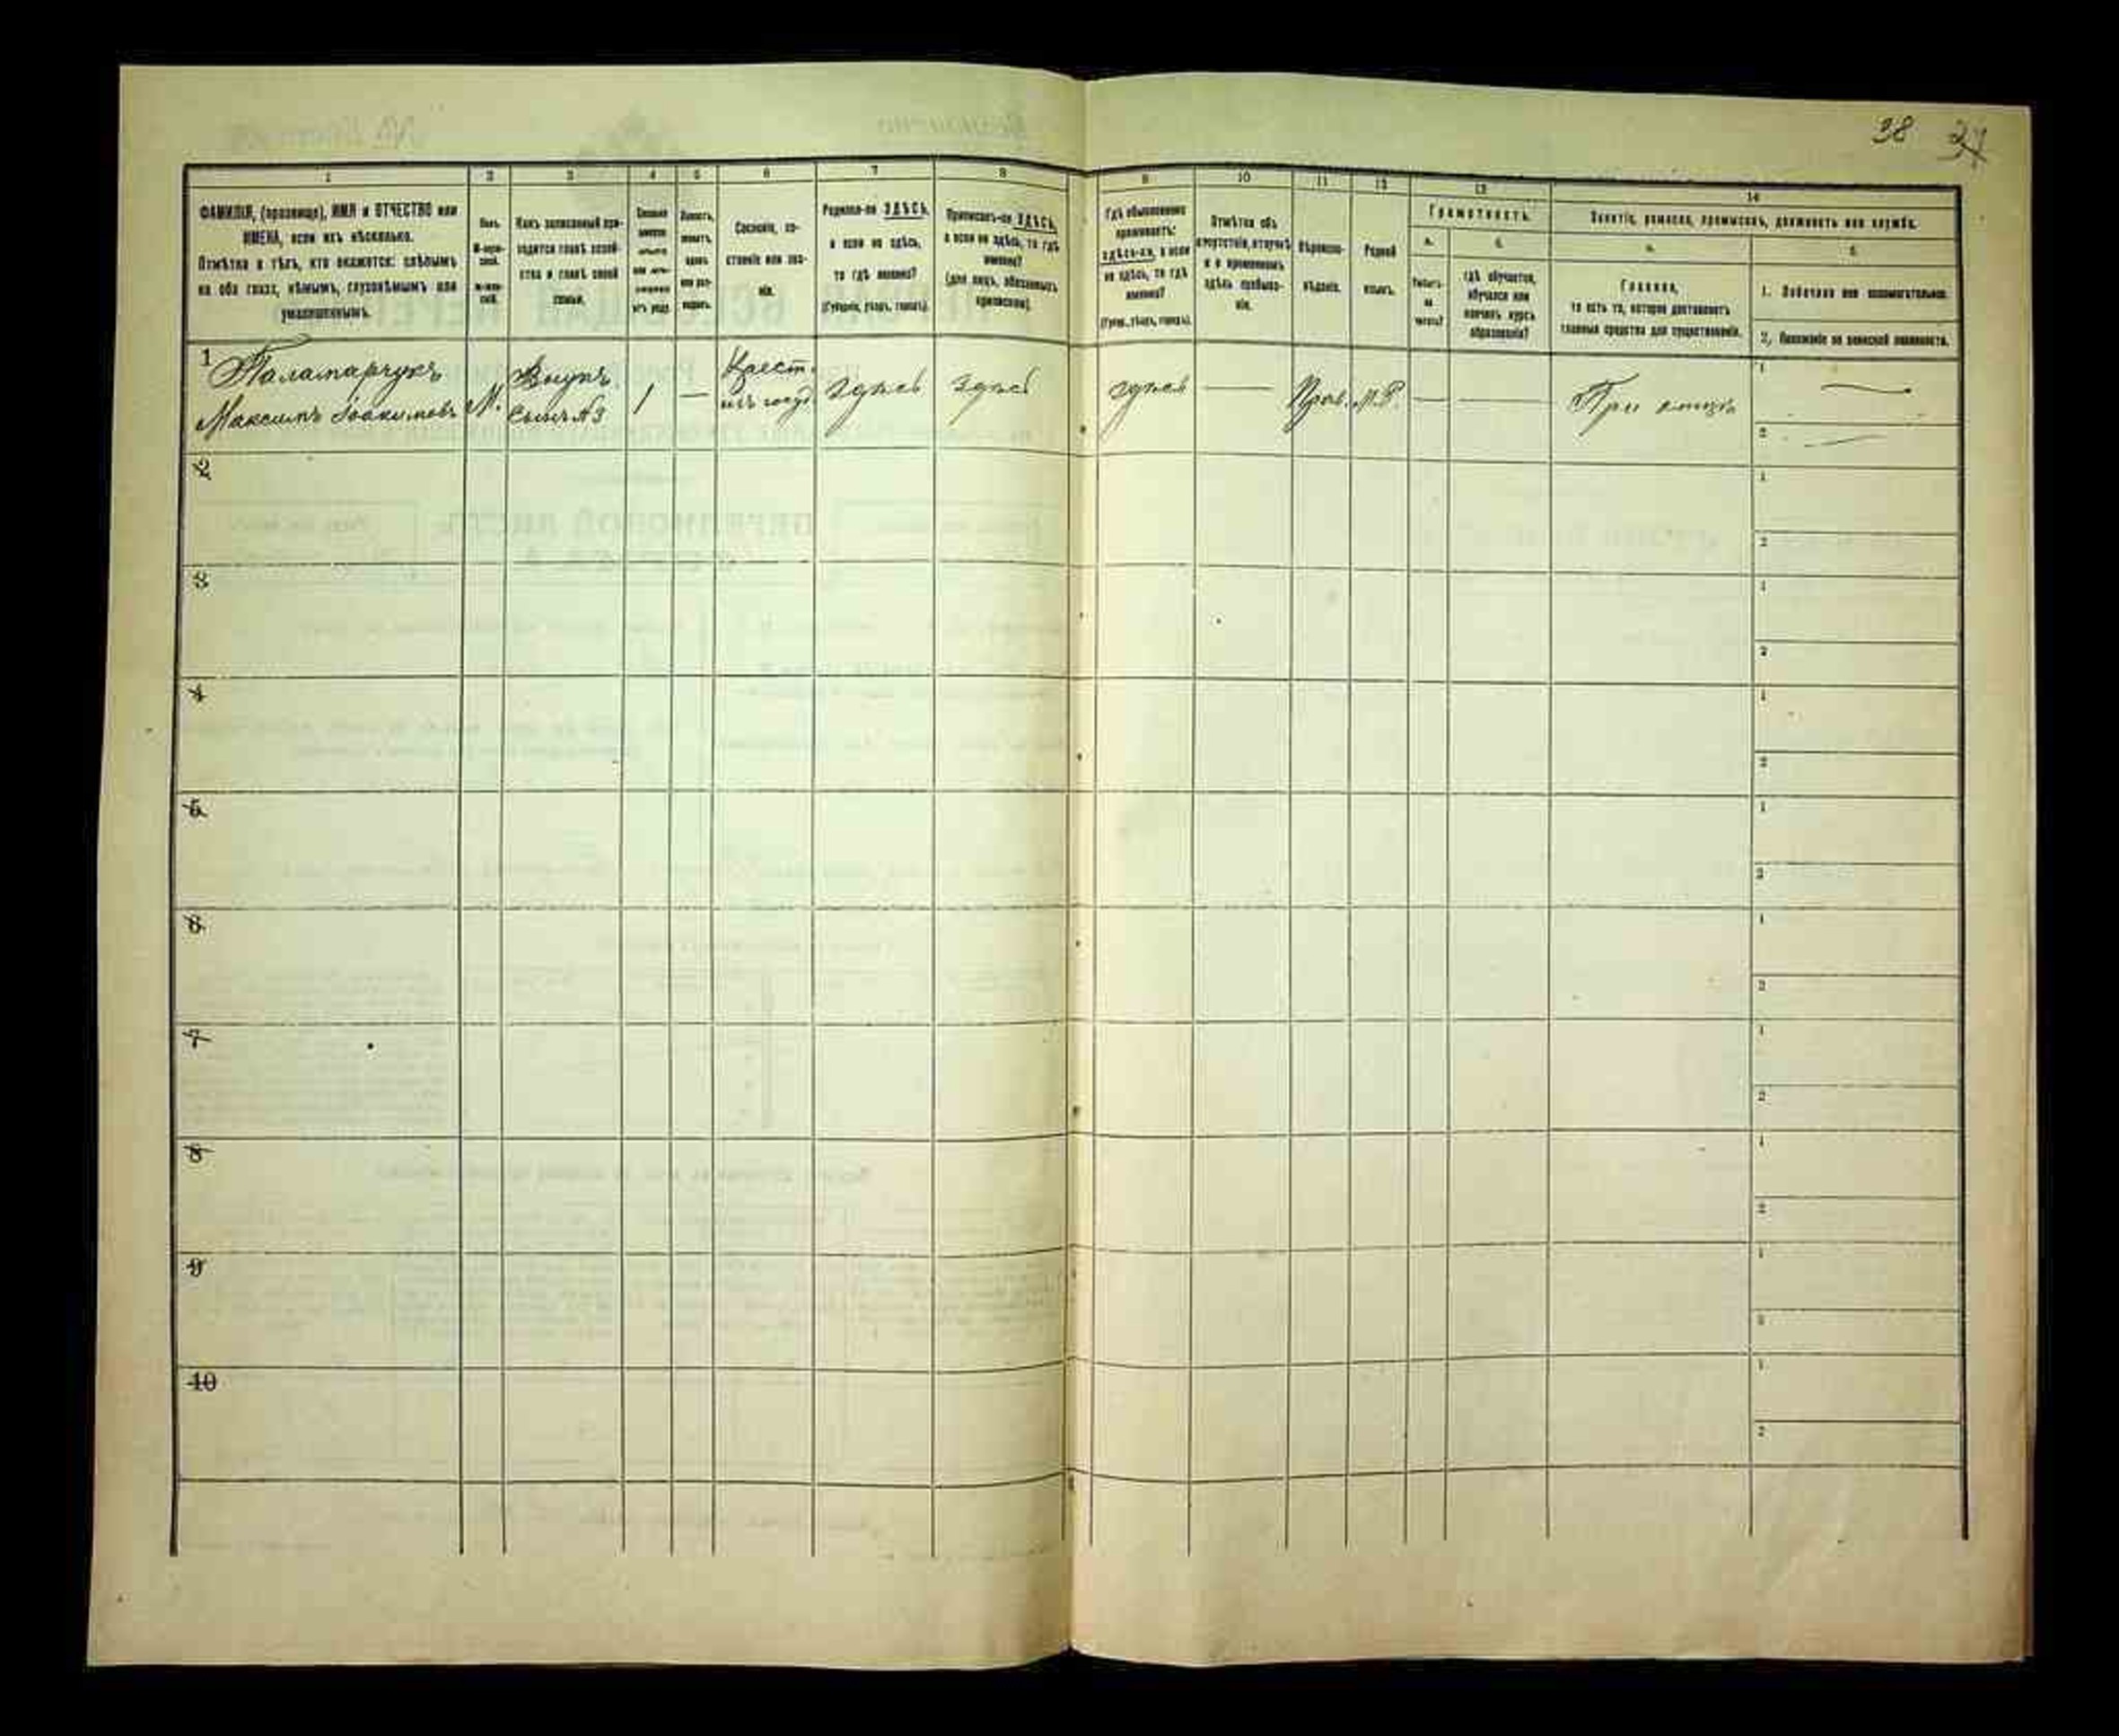 38 37
1 2 3 4 5 6 7 8
ФАМИЛІЯ, (прозвище), ИМЯ и ОТЧЕСТВО или
ИМЕНА, если ихъ нѣсколько.
Отмѣтка о тѣхъ, кто окажется: слѣпымъ
на оба глаза, нѣмымъ, глухонѣмымъ или
умалишеннымъ.
Полъ.
М-муж-
ской.
Ж-жен-
скій.
Какъ записанный при-
ходится главѣ хозяй-
ства и главѣ своей
семьи.
Сколько
минуло
лѣтъ
или мѣся-
цевъ
отъ роду.
Холостъ,
женатъ,
вдовъ
или раз-
веденъ.
Сословіе, со-
стояніе или зва-
ніе.
Родился-ли ЗДѢСЬ,
а если не здѣсь,
то гдѣ именно?
(Губернія, уѣздъ, городъ).
Приписанъ-ли ЗДѢСЬ,
а если не здѣсь, то гдѣ
именно?
(для лицъ, обязанныхъ
припискою).
9 10 11 12 13 14
Гдѣ обыкновенно
проживаетъ:
здѣсь-ли, а если
не здѣсь, то гдѣ
именно?
(Губер., уѣздъ, городъ).
Отмѣтка объ
отсутствіи, отлучкѣ
и о временномъ
здѣсь пребыва-
ніи.
Вѣроиспо-
вѣданіе.
Родной
языкъ.
Грамотность.
а. б.
Умѣетъ-
ли
читать?
гдѣ обучается,
обучался или
кончилъ курсъ
образованія?
Занятіе, ремесло, промыселъ, должность или служба.
а. б.
Главное,
то есть то, которое доставляетъ
главныя средства для существованія.
1. Побочное или вспомогательное.
2. Положеніе по воинской повинности.
1 Паламарчукъ
Максимъ Іоакимовъ
М.
Внукъ
Сынъ №3
1
—
Крест.
изъ госуд
здѣсь
здѣсь
здѣсь
—
Прав.
М.Р.
—
—
При отцѣ
1 —
2 —
2
1
2
3
1
2
4
1
2
5
1
2
6
1
2
7
1
2
8
1
2
9
1
2
10
1
2